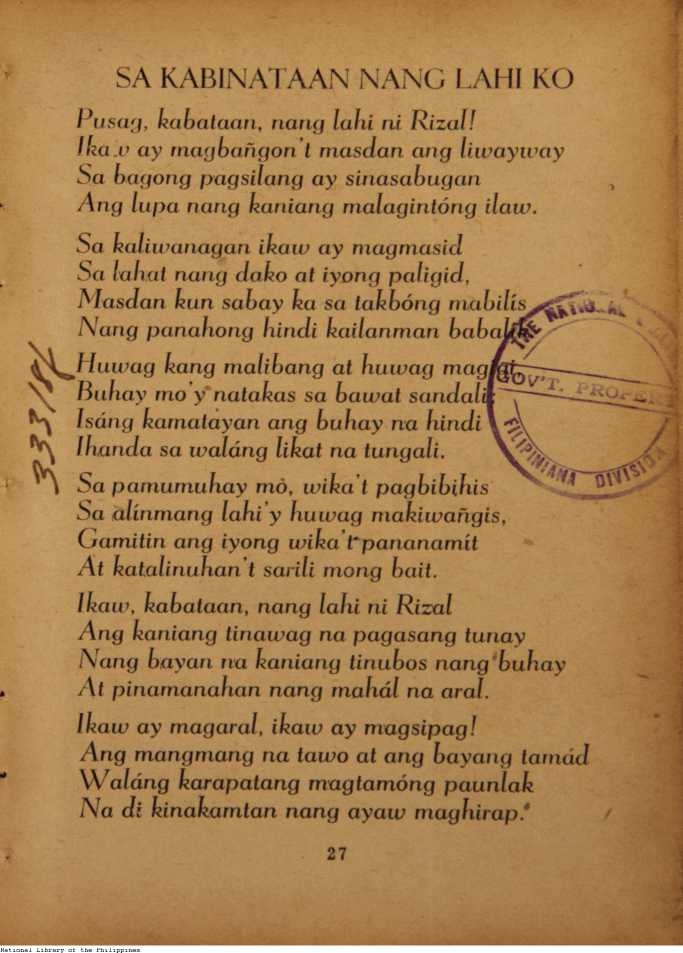 SA KABINATAAN NANG LAHI KO
Pusag, kabataan, nang lahi ni Rizal!
Ikaw ay magbañgon't masdan ang liwayway
Sa bagong pagsilang ay sinasabugan
Ang lupa nang kaniang malagintóng ilaw.
Sa kaliwanagan ikaw ay magmasid
Sa lahat nang dako at iyong paligid,
Masdan kun sabay ka sa takbóng mabilís
Nang panahong hindi kailanman babalik.
Huwag kang malibang at huwag
Buhay mo'y natakas sa bawat sandali:
Isáng kamatayan ang buhay na hindi
Ihanda sa waláng likat na tungali.
Sa pamumuhay mò, wika't pagbibihis
Sa alínmang lahi'y huwag makiwañgis,
Gamitin ang iyong wika't pananamít
At katalinuhan't sarili mong bait.
Ikaw, kabataan, nang lahi ni Rizal
Ang kaniang tinawag na pagasang tunay
Nang bayan na kaniang tinubos nang buhay
At pinamanahan nang mahál na aral.
Ikaw ay magaral, ikaw ay magsipag!
Ang mangmang na tawo at ang bayang tamád
Waláng karapatang magtamóng paunlak
Na di kinakamtan nang ayaw maghirap.
27
333/84
THE NATIONAL
GOV'T. PROPERTY
FILIPINIANA DIVISION
National Library of the Philippines